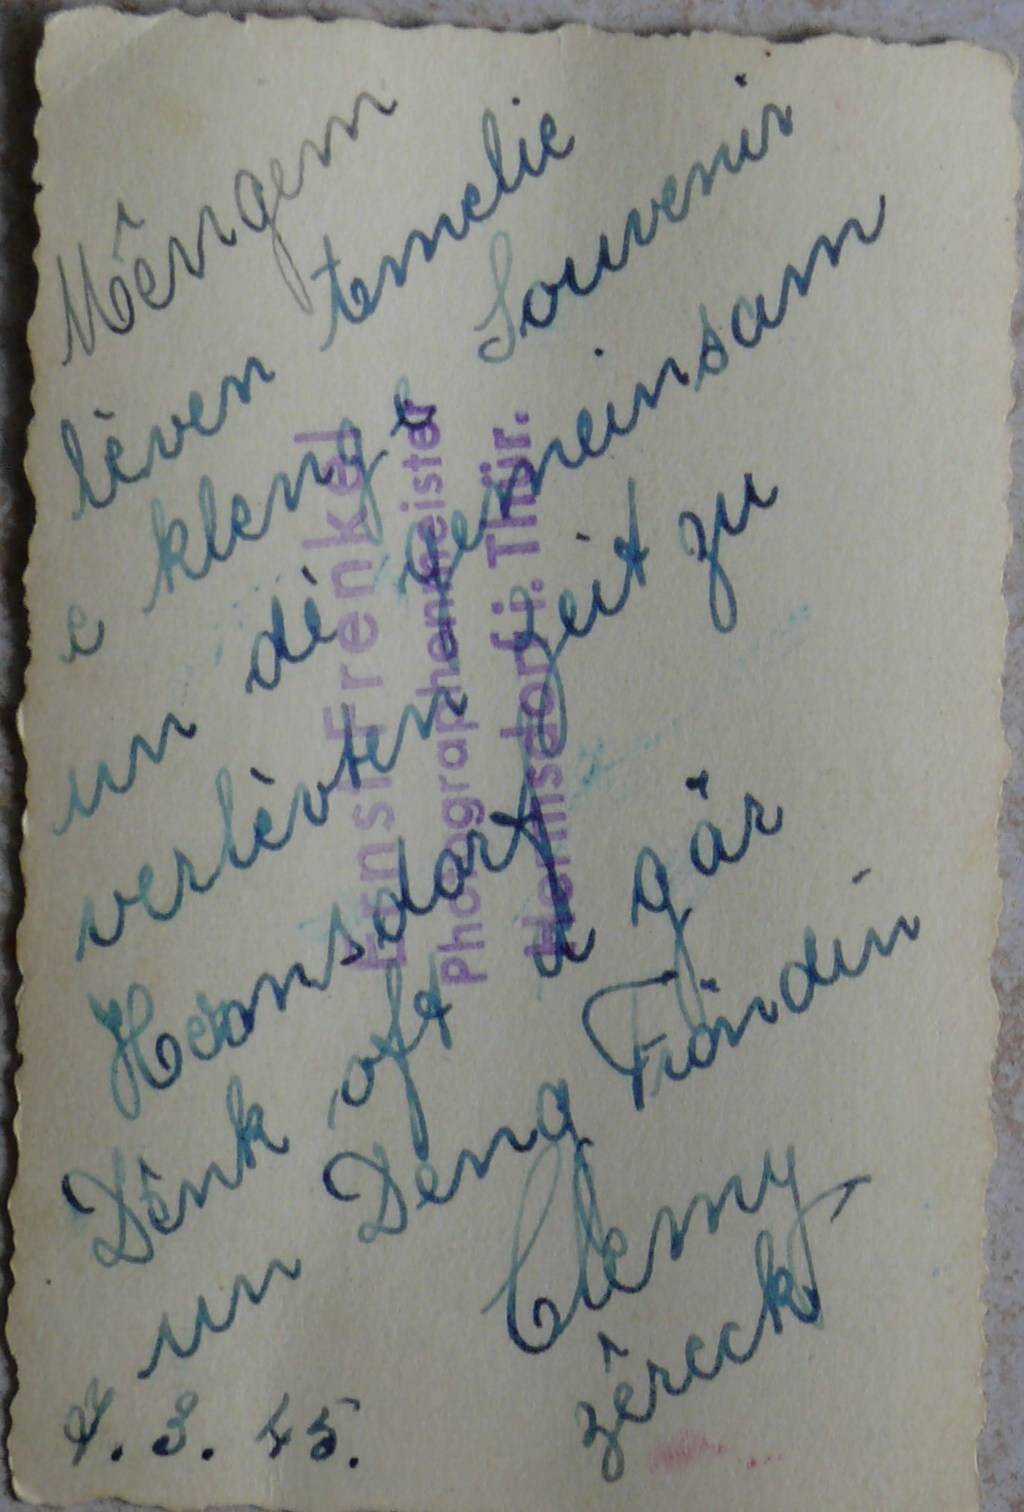 Mêngem
lèven Emelie
e klengt Souvenir
un dè gemeinsam
verlèvten Zeit zu
Hermsdorf
Dênk oft a gär
un Deng Fröndin
Clemy
zêreck
4. 3. 45.
Ernst Frenkel
Photographenmeister
Hermsdorf i. Thür.